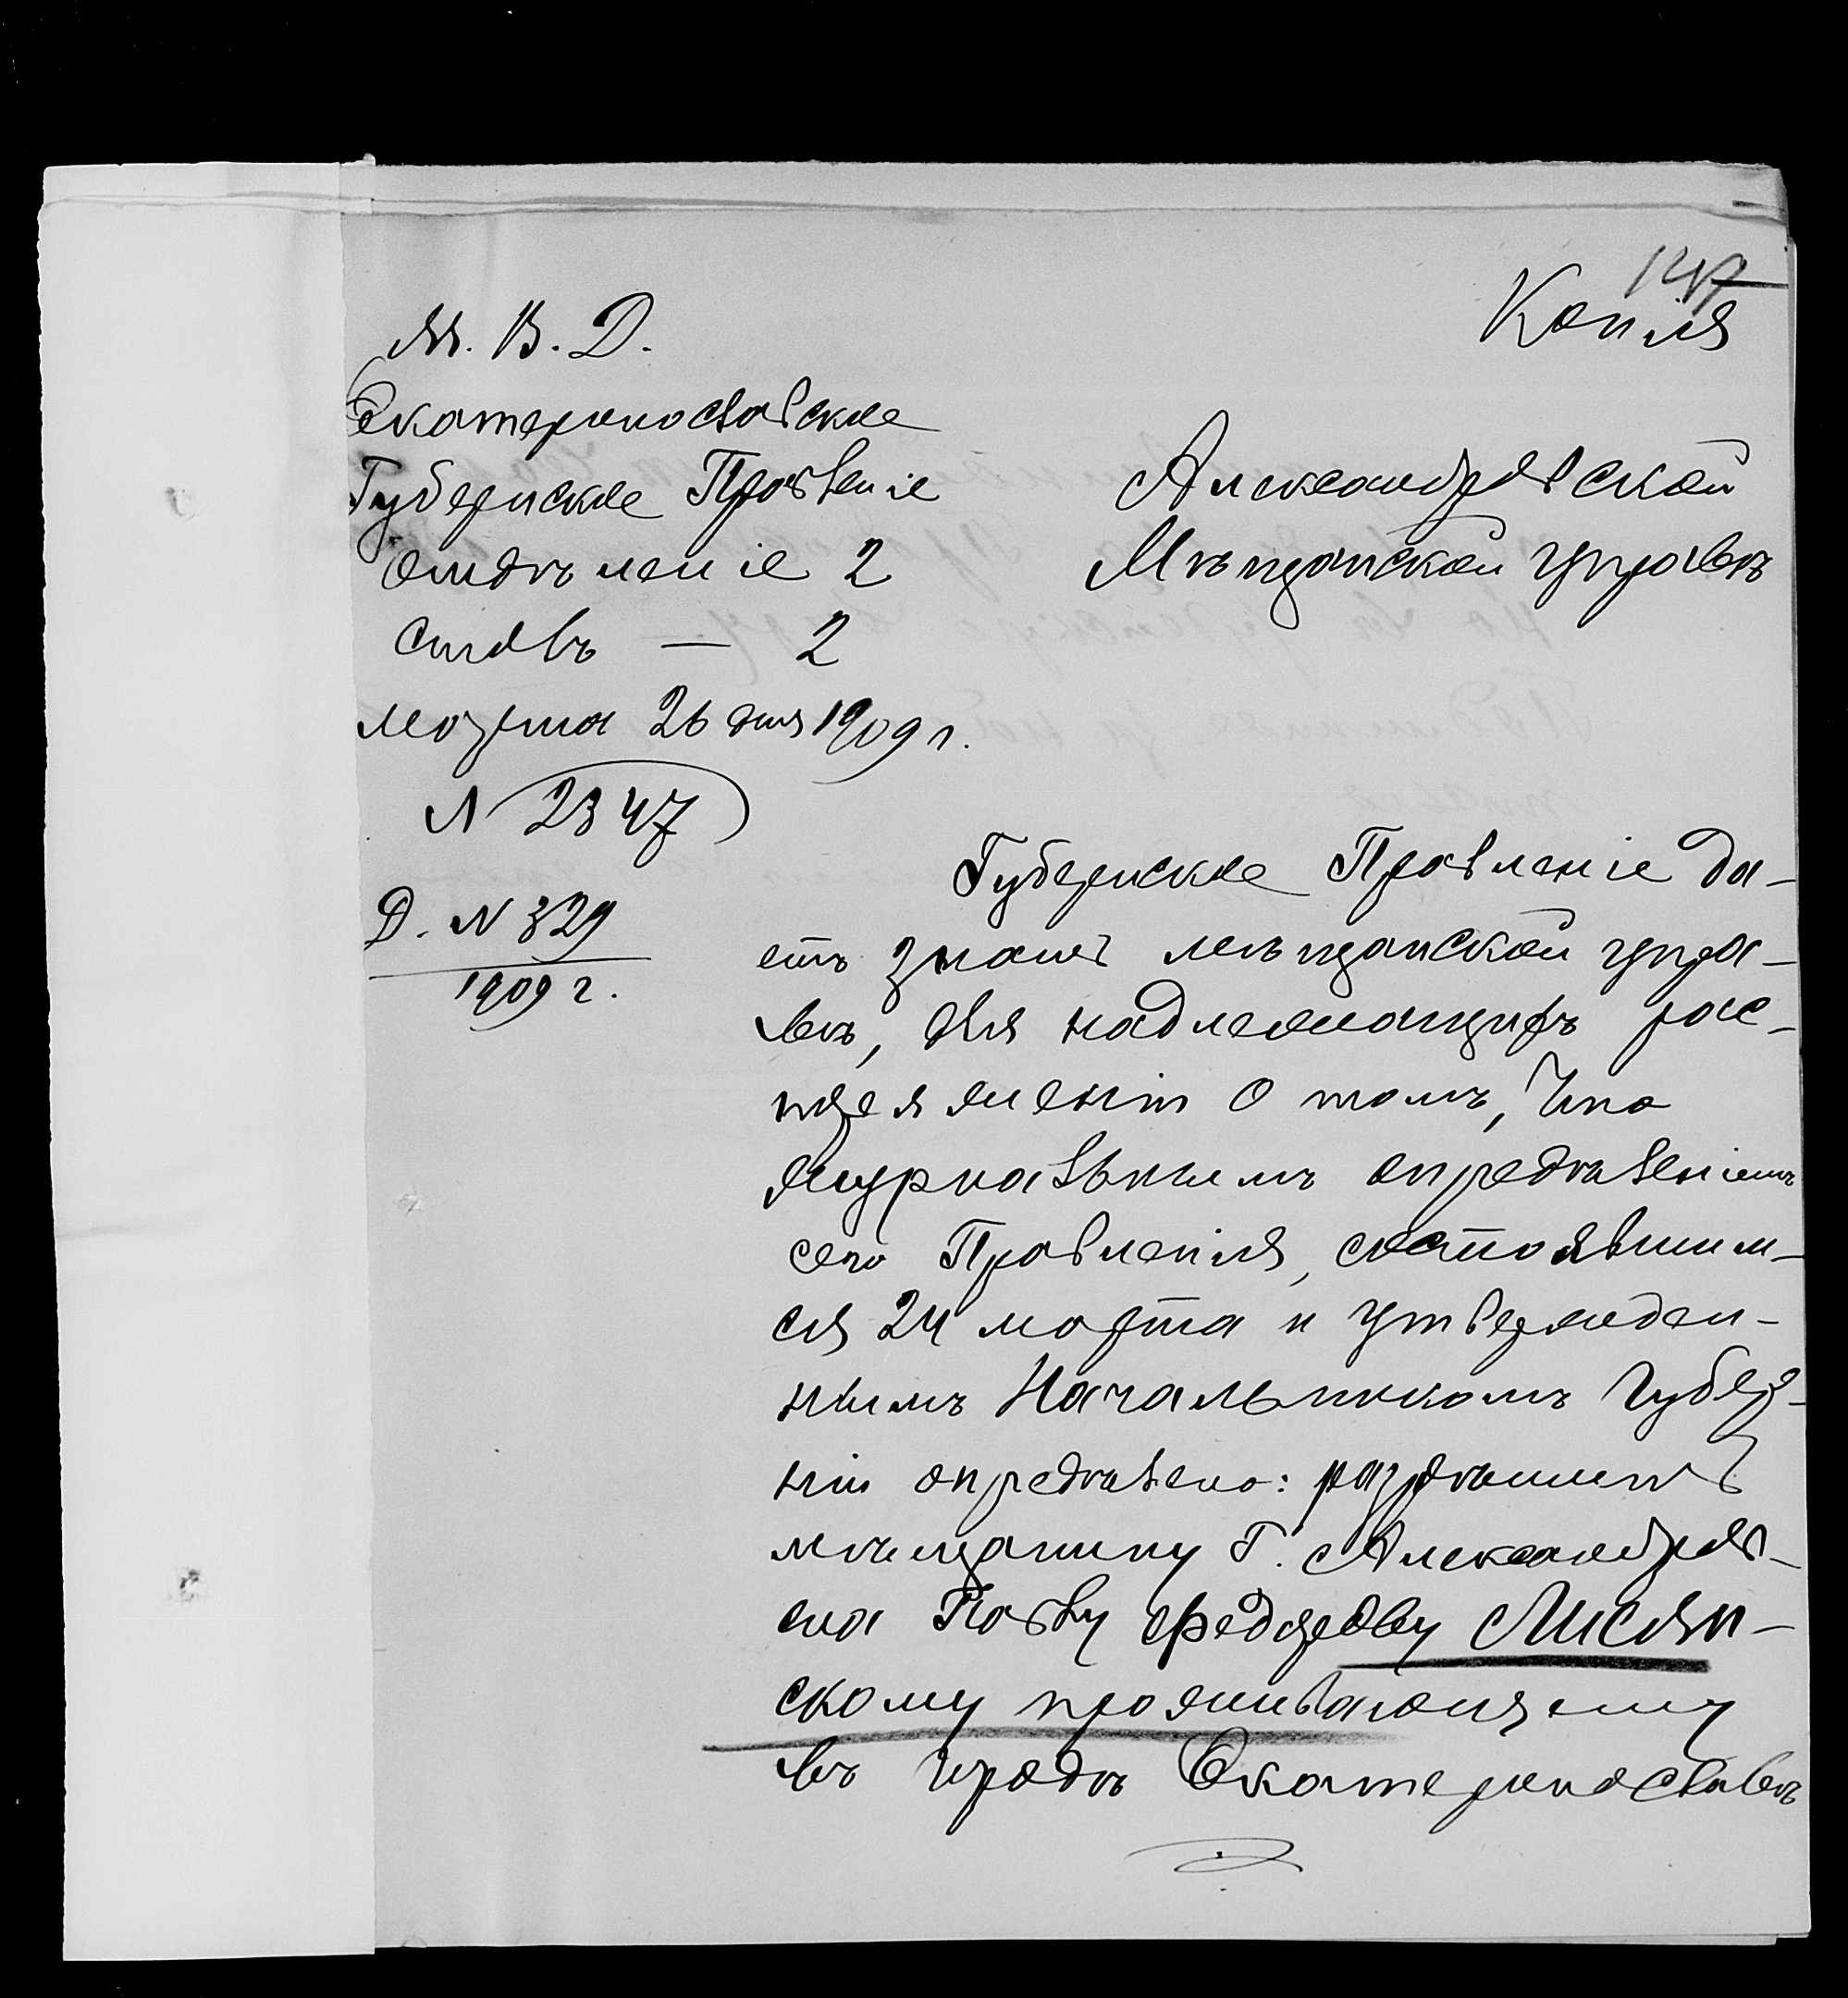 147
Копія
М. В. Д.
Екатеринославское
Губернское Правленіе
отдѣленіе 2
столъ — 2
марта 26 дня 1909 г.
N 2347
Д. N 329
1909 г.
Александровской
Мѣщанской управѣ
Губернское Правленіе да-
етъ знать мѣщанской упра-
вѣ, для надлежащихъ рас-
поряженій о томъ, что
журнальнымъ опредѣленіемъ
сего Правленія, состоявшим-
ся 24 марта и утвержден-
нымъ Начальникомъ губер-
ніи опредѣлено: разрѣшить
мѣщанину г. Александров-
ска Павлу Федорову Лисян-
скому проживающему
въ городѣ Екатеринославѣ